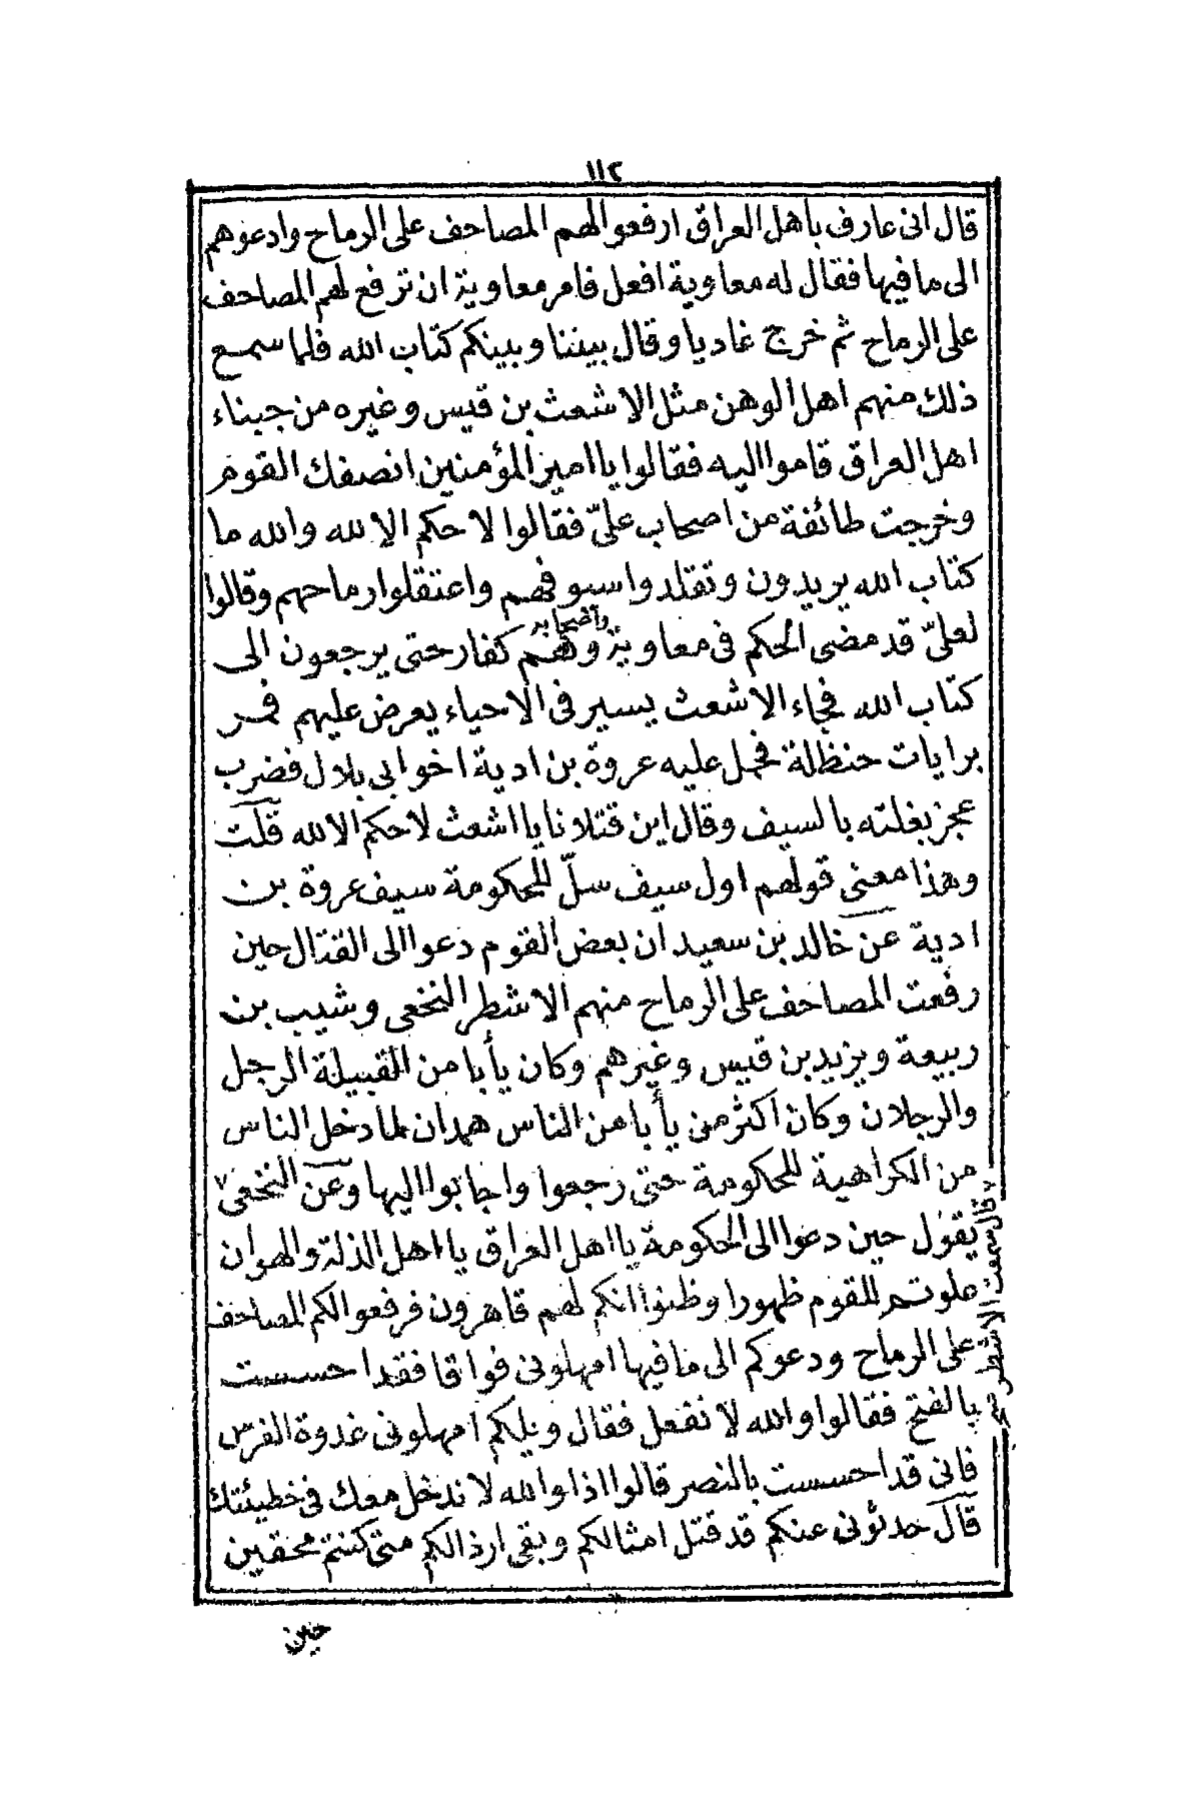 ١١٢
قال انى عارف باهل العراق ارفعوا لهم المصاحف على الرماح وادعوهم
الى ما فيها فقال له معاوية افعل فامر معاوية ان ترفع لهم المصاحف
على الرماح ثم خرج غاديا وقال بيننا وبينكم كتاب الله فلما سمع
ذلك منهم اهل الوهن مثل الاشعث بن قيس وغيره من جبناء
اهل العراق قاموا اليه فقالوا يا امير المؤمنين انصفك القوم
وخرجت طائفة من اصحاب علىّ فقالوا لا حكم الا لله والله ما
كتاب الله يريدون وتقلدوا سيوفهم واعتقلوا رماحهم وقالوا
لعلىّ قد مضى الحكم فى معاوية واصحابه وهم كفار حتى يرجعون الى
كتاب الله فجاء الاشعث يسير فى الاحياء يعرض عليهم فمر
برايات حنظلة فحمل عليه عروة بن ادية اخو ابى بلال فضرب
عجز بغلته بالسيف وقال اين قتلانا يا اشعث لا حكم الا لله قلت
وهذا معنى قولهم اول سيف سلّ للحكومة سيف عروة بن
ادية عن خالد بن سعيد ان بعض القوم دعوا الى القتال حين
رفعت المصاحف على الرماح منهم الاشطر النخعى وشبيب بن
ربيعة ويزيد بن قيس وغيرهم وكان يأبا من القبيلة الرجل
والرجلان وكان اكثر من يأبا من الناس همدان لما دخل الناس
من الكراهية للحكومة حتى رجعوا واجابوا اليها وعن النخعى
قال سمعت الاشطر
يقول حين دعوا الى الحكومة يا اهل العراق يا اهل الذلة والهوان
علوتم للقوم ظهورا وظنوا انكم لهم قاهرون فرفعوا لكم المصاحف
على الرماح ودعوكم الى ما فيها امهلونى فواقا فقد احسست
بالفتح فقالوا والله لا نفعل فقال ويلكم امهلونى غدوة الفرس
فانى قد احسست بالنصر قالوا اذا والله لا ندخل معك فى خطيئتك
قال حدثونى عنكم قد قتل امثالكم وبقى ارذالكم متى كنتم محقين
حين